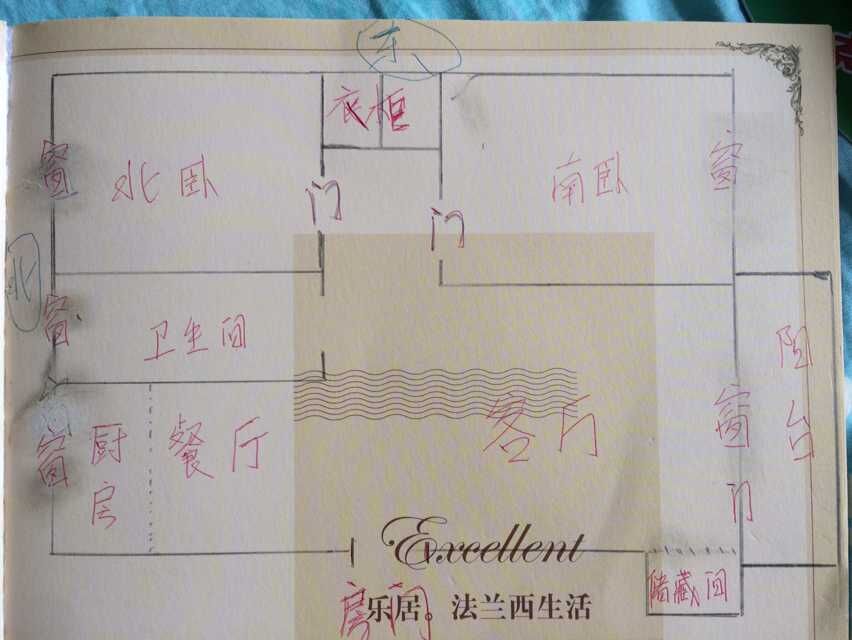 东
衣柜
窗
北卧
门
南卧
窗
门
北
窗
卫生间
阳台
窗
厨房
餐厅
客厅
窗
门
Excellent
储藏间
房门
乐居。法兰西生活